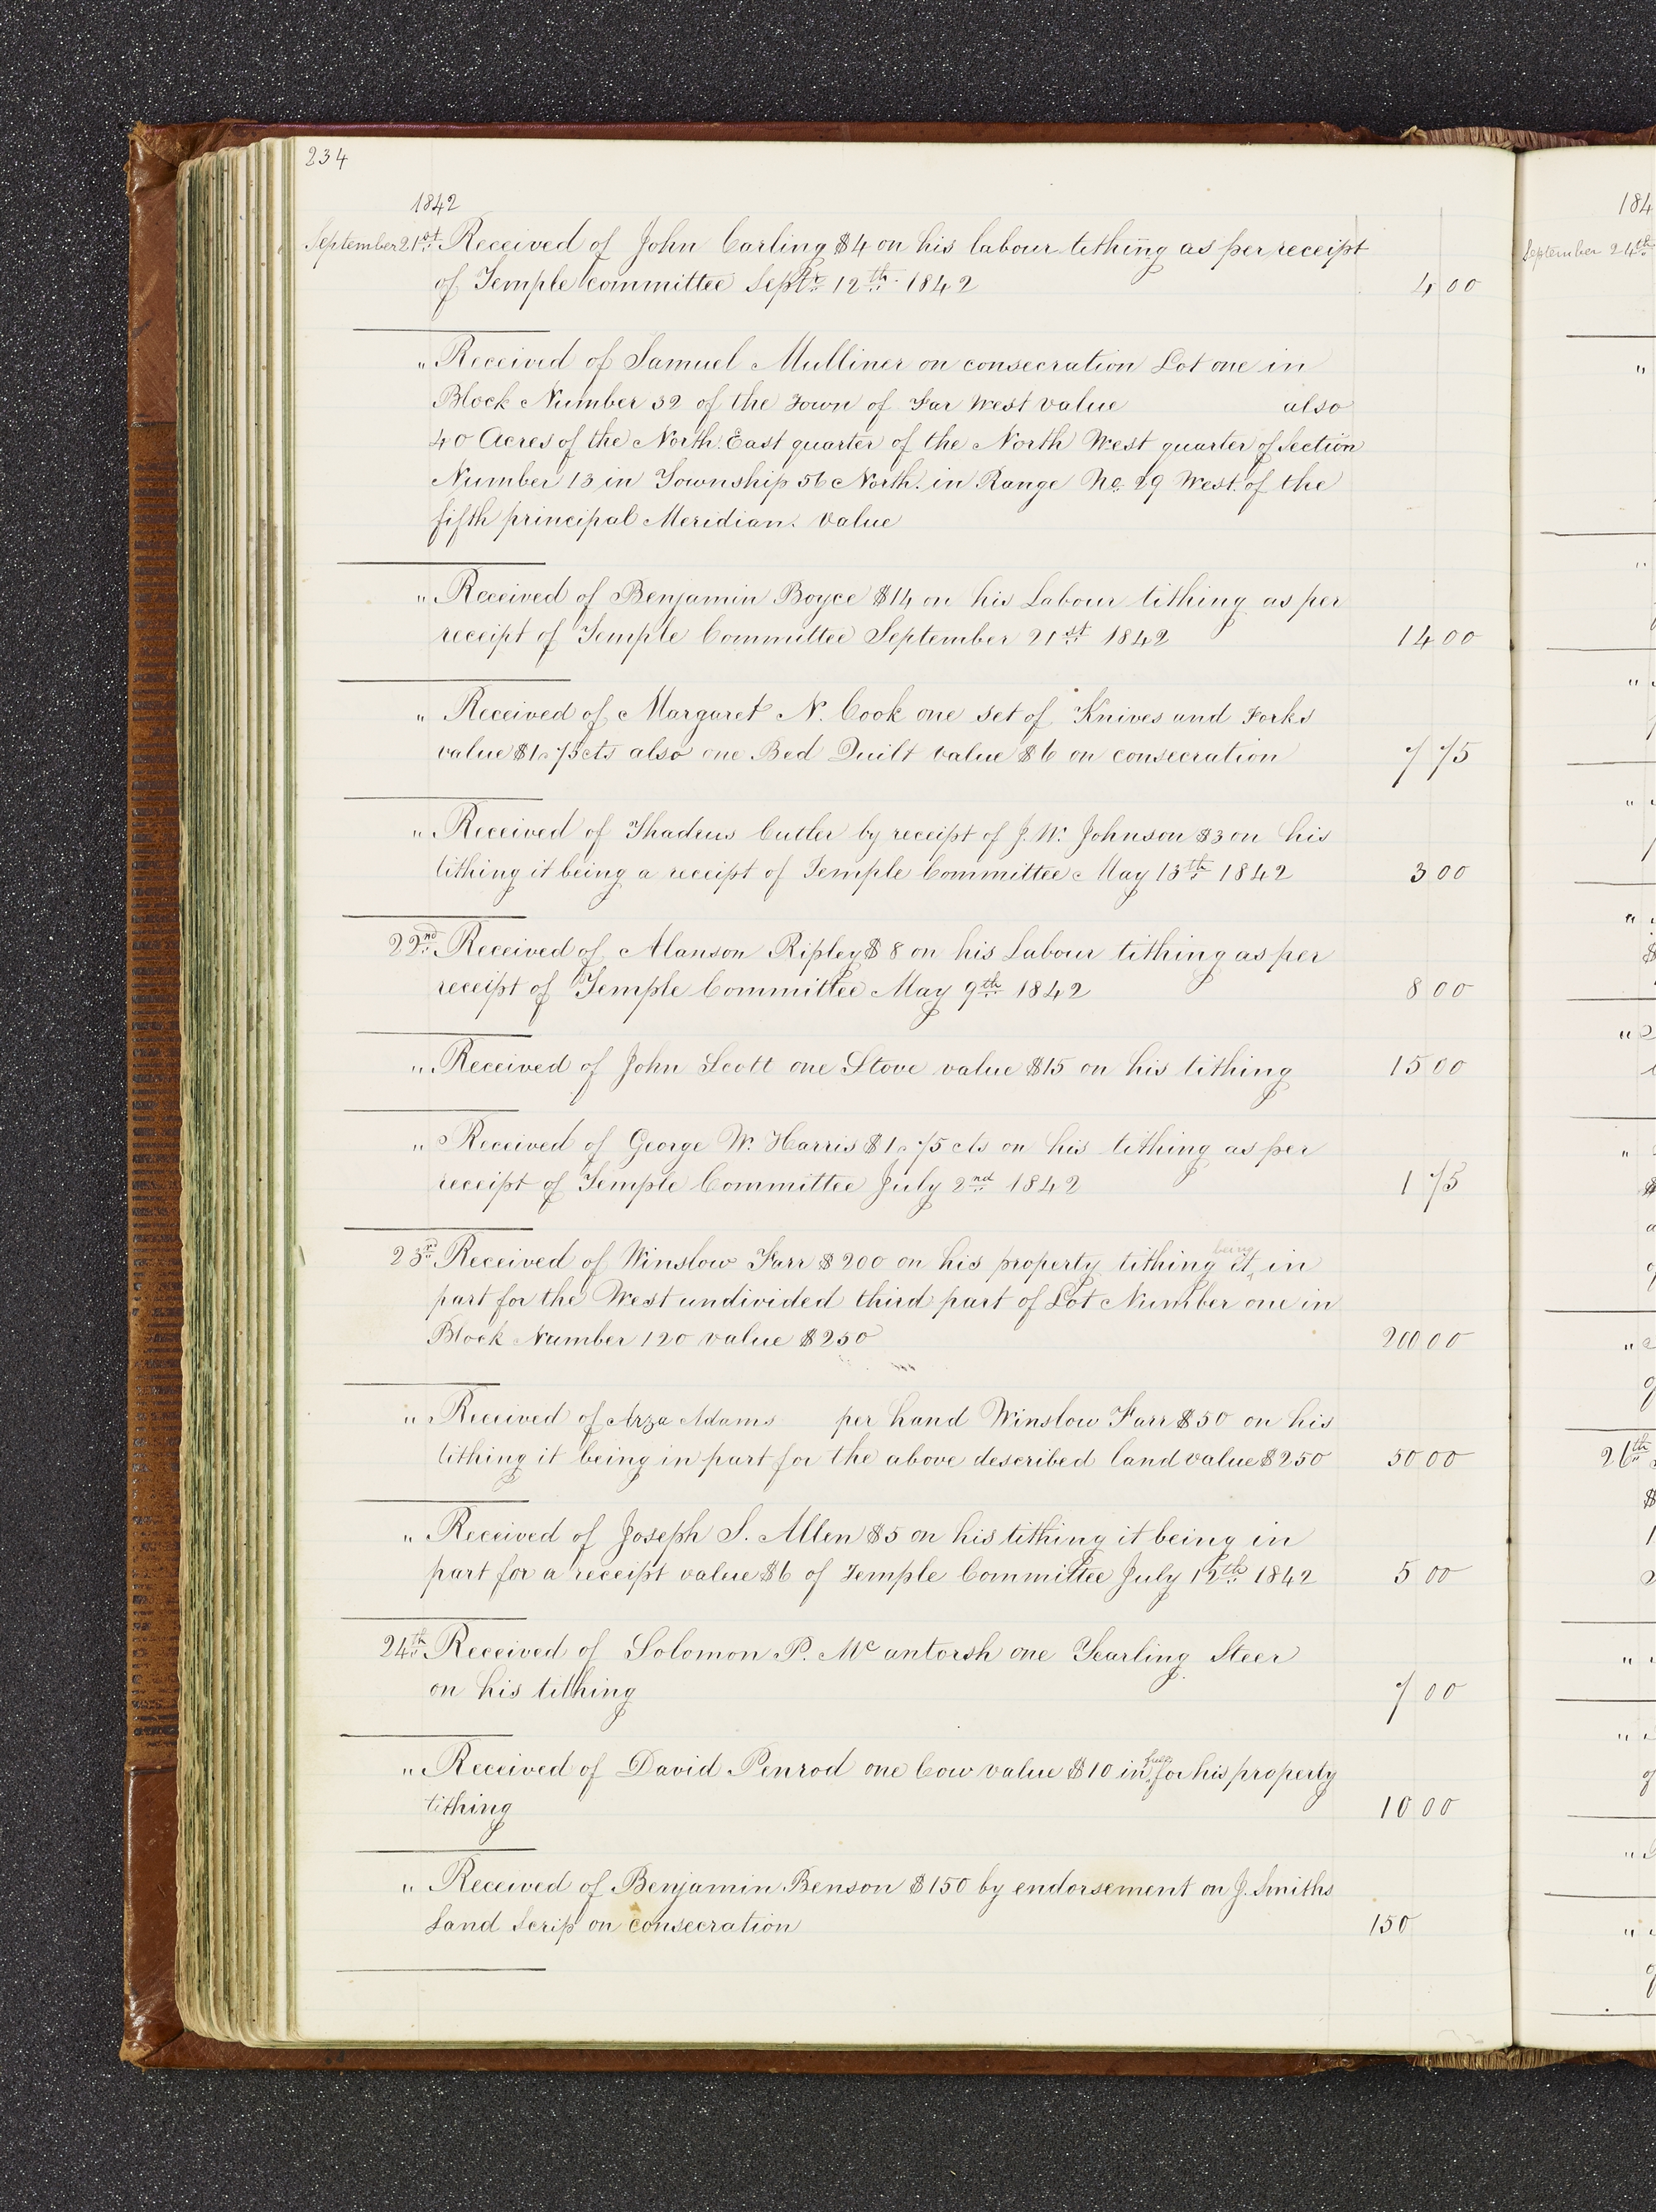 234
1842
September 21st Received of John Carling $4 on his labour tithing as per receipt
of Temple Committee Sept.r 12th 1842 4 00
" Received of Samuel Mulliner on consecration Lot one in
Block Number 32 of the Town of Far West value also
40 Acres of the North East quarter of the North West quarter of Section
Number 13 in Township 56 North. in Range No. 29 West. of the
fifth principal Meridian. value
" Received of Benjamin Boyce $14 on his Labour tithing as per
receipt of Temple Committee September 21st 1842 14 00
" Received of Margaret N. Cook one set of Knives and Forks
value $1.75cts also one Bed Quilt value $6 on consecration 7 75
" Received of Thadeus Cutler by receipt of J. W. Johnson $3 on his
tithing it being a receipt of Temple Committee May 13th 1842 3 00
22nd Received of Alanson Ripley $8 on his Labour tithing as per
receipt of Temple Committee May 9th 1842 8 00
" Received of John Scott one Stove value $15 on his tithing 15 00
" Received of George W. Harris $1.75 cts on his tithing as per
receipt of Temple Committee July 2nd 1842 1 75
23rd Received of Winslow Farr $200 on his property tithing it being in
part for the West undivided third part of Lot Number one in
Block Number 120 value $250 200 00
" Received of Arza Adams per hand Winslow Farr $50 on his
tithing it being in part for the above described land value $250 50 00
" Received of Joseph S. Allen $5 on his tithing it being in
part for a receipt value $6 of Temple Committee July 12th 1842 5 00
24th Received of Solomon P. Mcantorsh one Yearling Steer
on his tithing 7 00
" Received of David Penrod one Cow value $10 in full for his property
tithing 10 00
" Received of Benjamin Benson $150 by endorsement on J. Smiths
Land Scrip on consecration 150
184
September 24th
26th